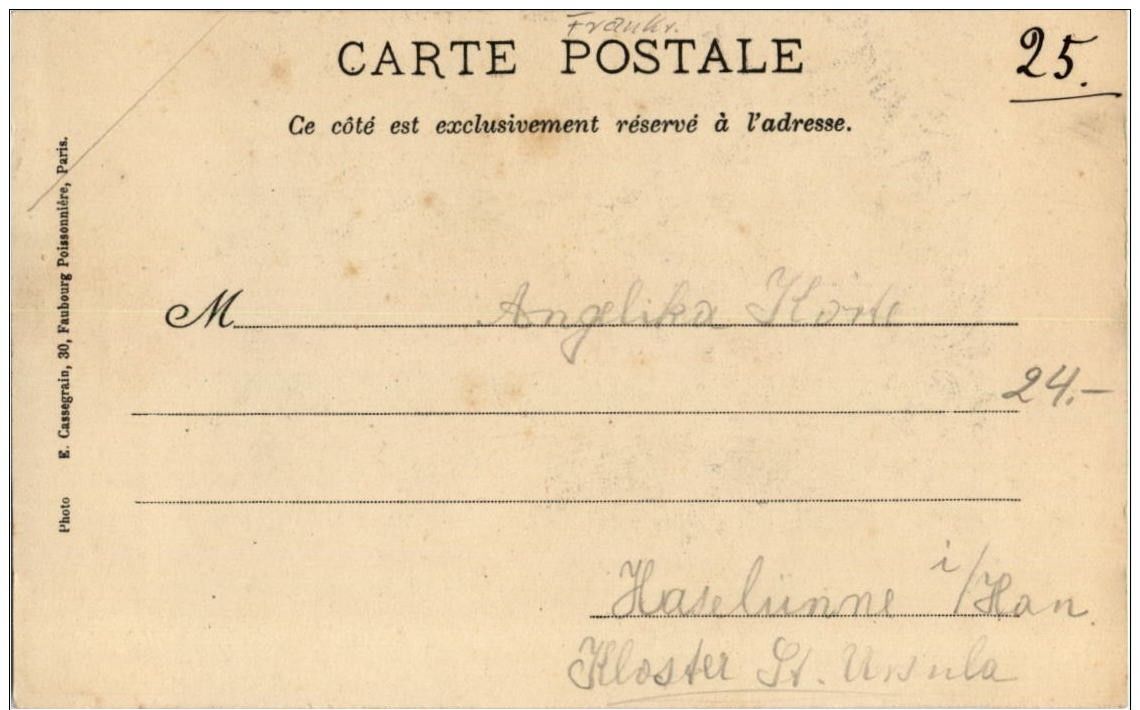 Frankr.
CARTE POSTALE
25.
Ce côté est exclusivement réservé à l'adresse.
Photo E. Cassegrain, 30, Faubourg Poissonnière, Paris.
M Angelika Korte
24.-
Haselünne i/Han.
Kloster St. Ursula